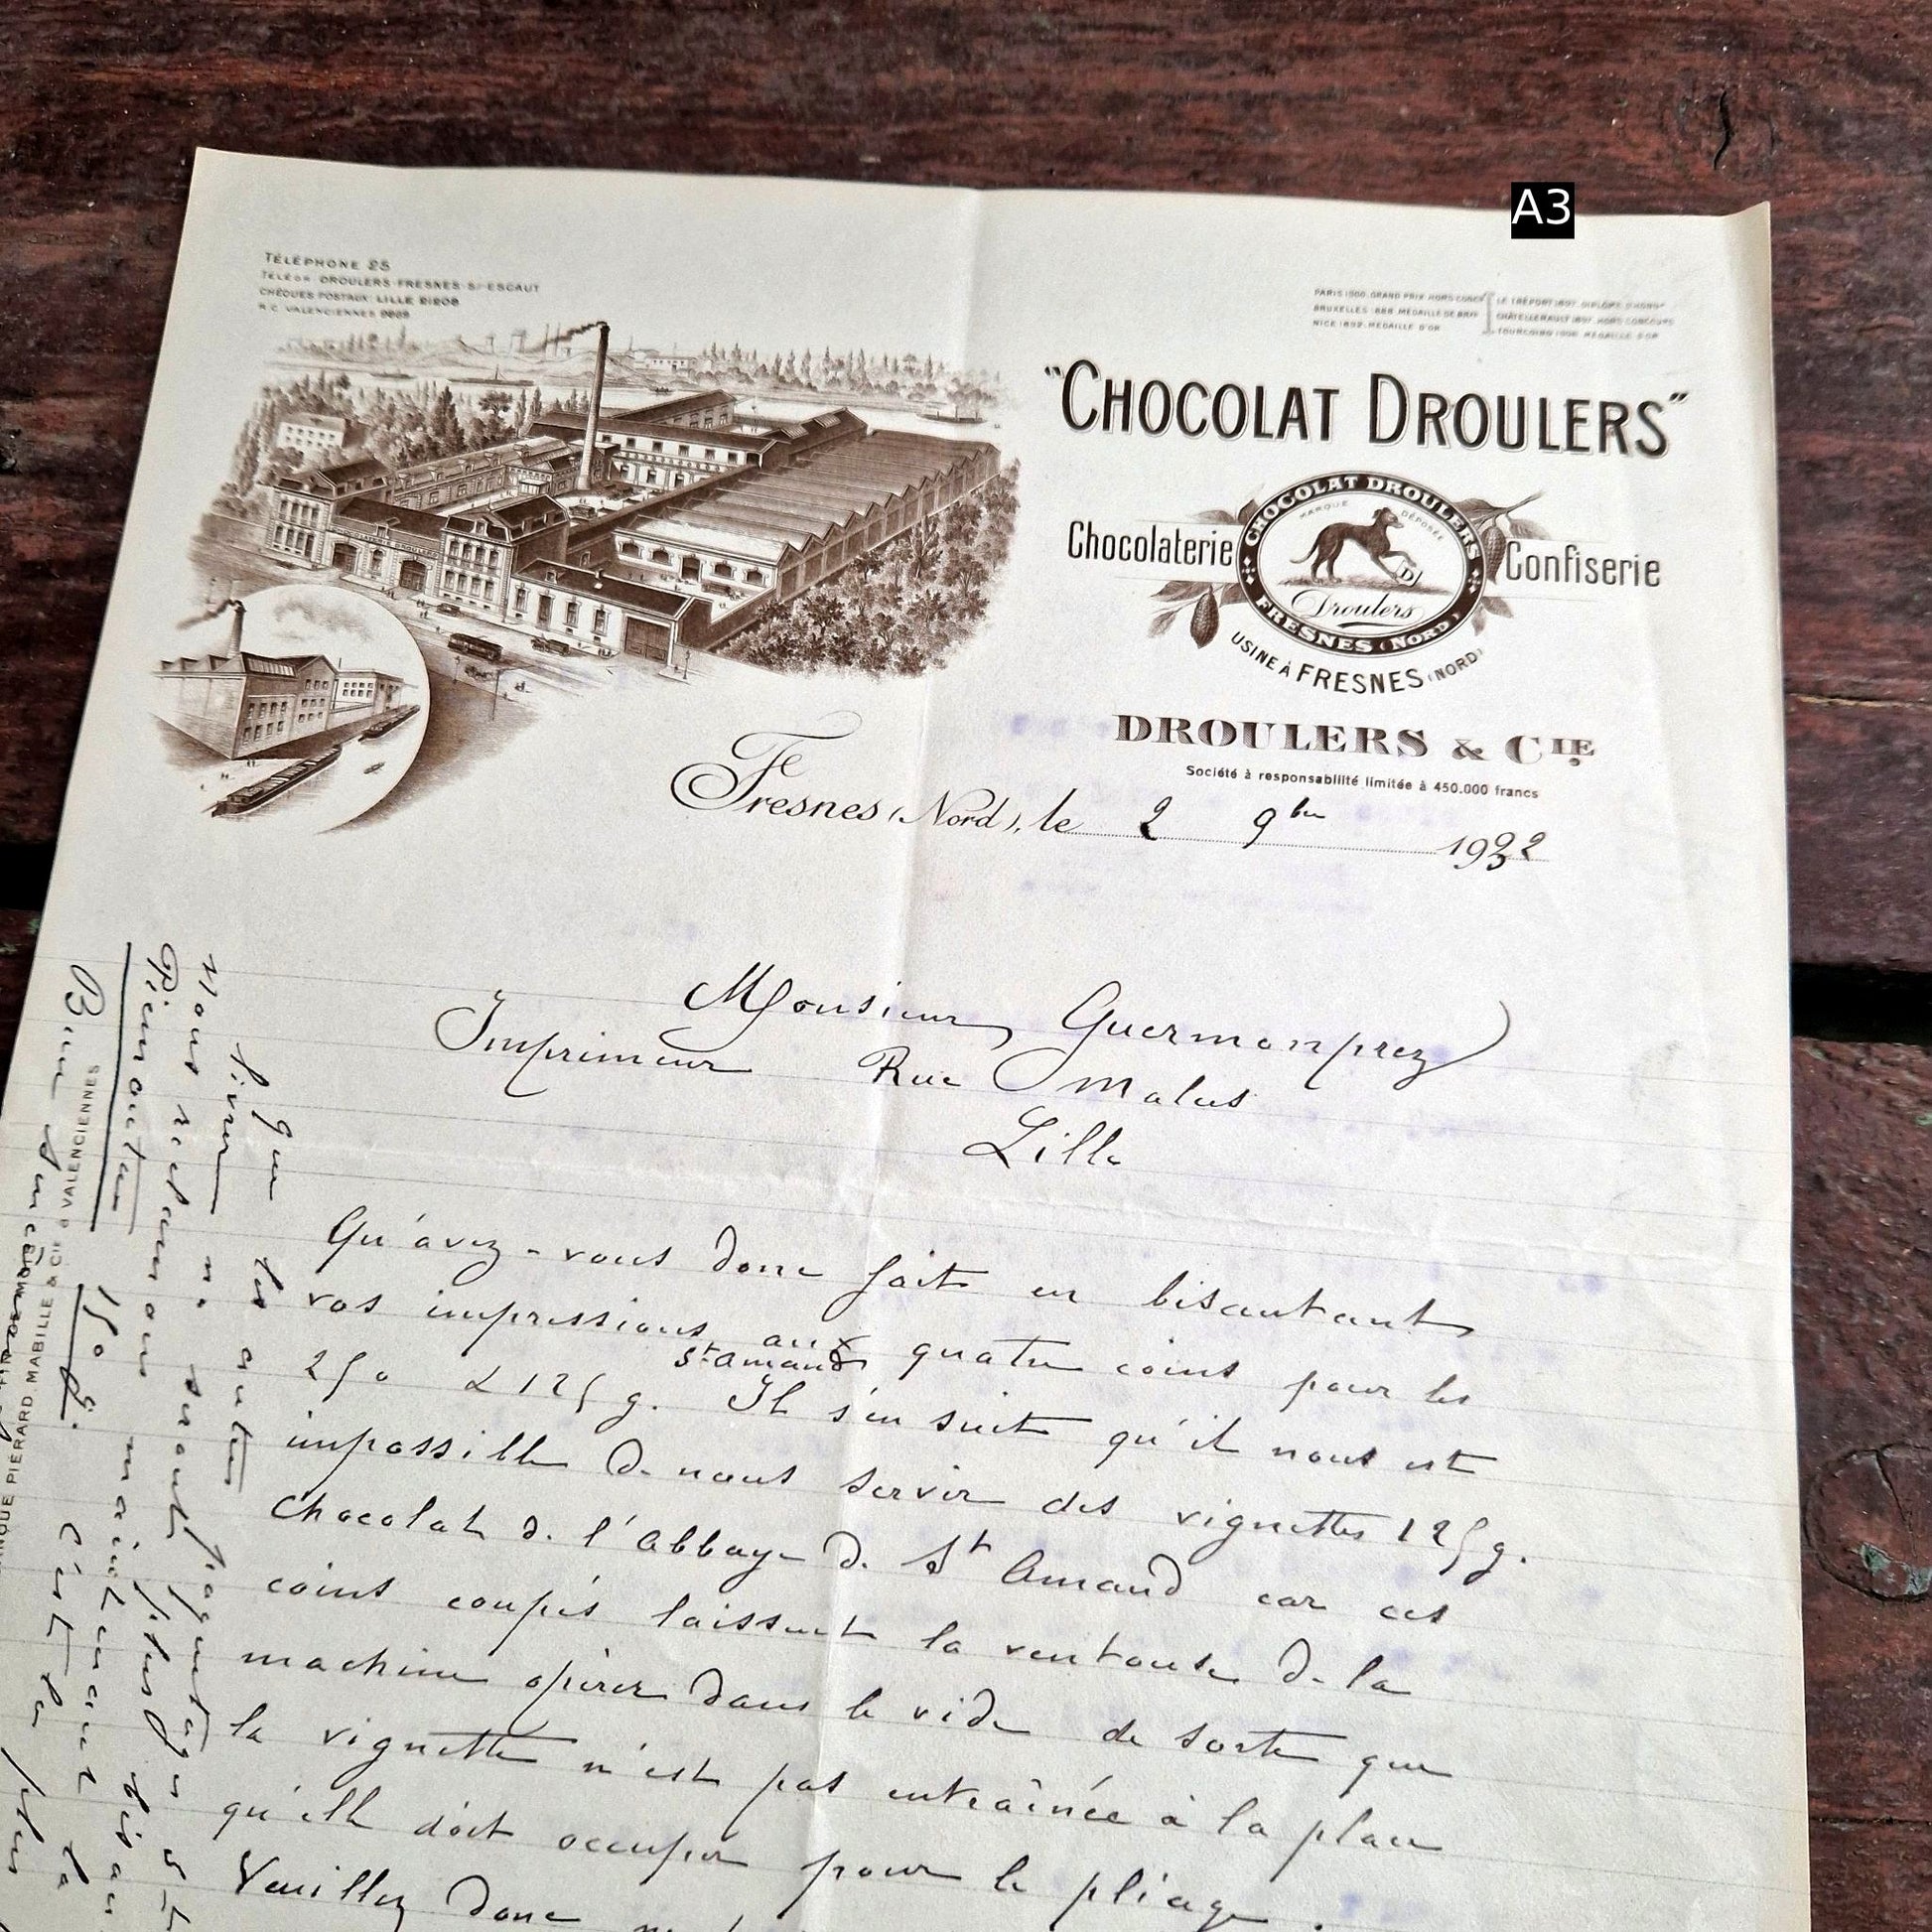 A3
TÉLÉPHONE 25
TÉLÉGR: DROULERS-FRESNES-S/-ESCAUT
CHÈQUES POSTAUX: LILLE
R.C. VALENCIENNES
PARIS 1900. GRAND PRIX. HORS CONC.
BRUXELLES 1888. MÉDAILLE DE BR
NICE 1892. MÉDAILLE D'OR
LE TRÉPORT 1897. DIPLÔME D'HONR
CHÂTELLERAULT 1897. HORS CONCOURS
TOURCOING 1906. MÉDAILLE D'OR
"CHOCOLAT DROULERS"
Chocolaterie
CHOCOLAT DROULERS
MARQUE DÉPOSÉE
D
Droulers
FRESNES (NORD)
Confiserie
USINE À FRESNES (NORD)
DROULERS & CIE
Société à responsabilité limitée à 450.000 francs
Fresnes (Nord), le 2 9bre 1932
Monsieur Guermonprez
Imprimeur Rue Malus
Lille
Qu'avez-vous donc fait en biseautant
vos impressions aux quatre coins pour les
250 & 125 g. St Amand Il s'en suit qu'il nous est
impossible de nous servir des vignettes 125 g.
Chocolat de l'Abbaye de St Amand car ces
coins coupés laissent la ventouse de la
machine opérer dans le vide de sorte que
la vignette n'est pas entraînée à la place
qu'elle doit occuper pour le pliage.
Veuillez donc
que les autres
livrer ne seront
Nous réclamons
maintenant
150 g.
PIÉRARD, MABILLE & CIE à VALENCIENNES